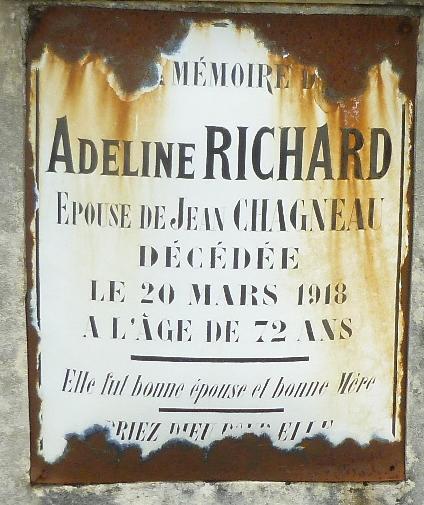 MÉMOIRE D
ADELINE RICHARD
EPOUSE DE JEAN CHAGNEAU
DÉCÉDÉE
LE 20 MARS 1918
A L'ÂGE DE 72 ANS
Elle fut bonne épouse et bonne Mère
PRIEZ DIEU POUR ELLE